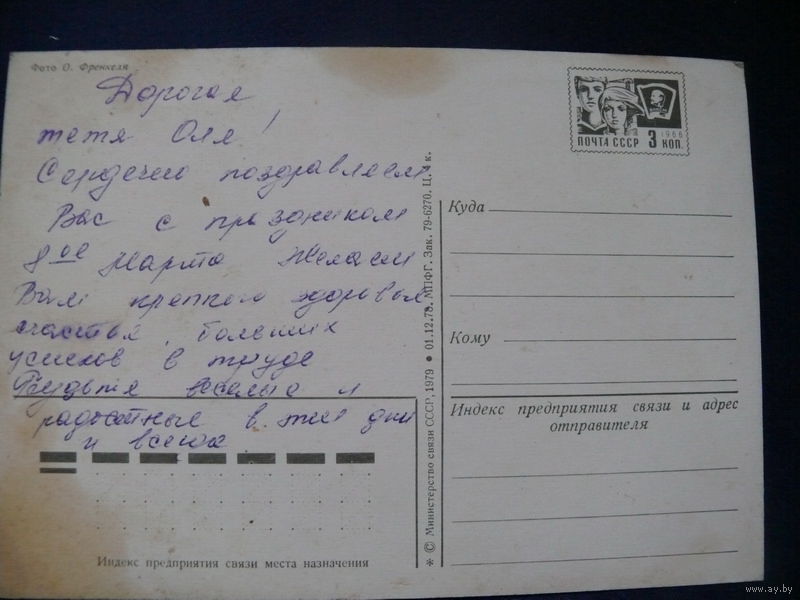 Фото О. Френкеля
Дорогая
тетя Оля!
Сердечно поздравляем
Вас с праздником
8ое Марта Желаем
Вам крепкого здоровья,
счастья, больших
успехов в труде
Будьте веселые и
радостные в эти дни
и всегда
Индекс предприятия связи места назначения
* © Министерство связи СССР, 1979 ● 01.12.78. МПФГ. Зак. 79-6270. Ц. 4 к.
1966
ПОЧТА СССР 3 КОП.
Куда
Кому
Индекс предприятия связи и адрес
отправителя
www.ay.by